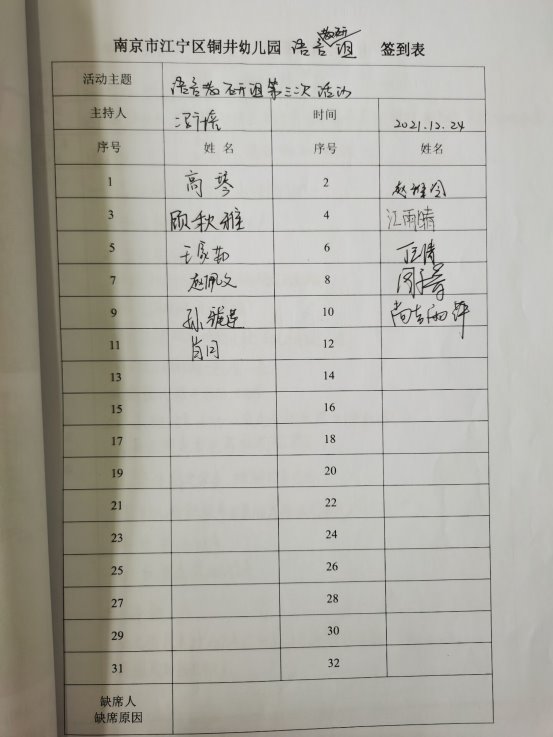 南京市江宁区铜井幼儿园 语言教研组 签到表
活动主题 语言教研组第三次活动
主持人 时间 2021.12.24
序号 姓名 序号 姓名
1 高琴 2
3 顾秋雅 4 江雨晴
5 6
7 赵佩文 8
9 10
11 肖同 12
13 14
15 16
17 18
19 20
21 22
23 24
25 26
27 28
29 30
31 32
缺席人
缺席原因